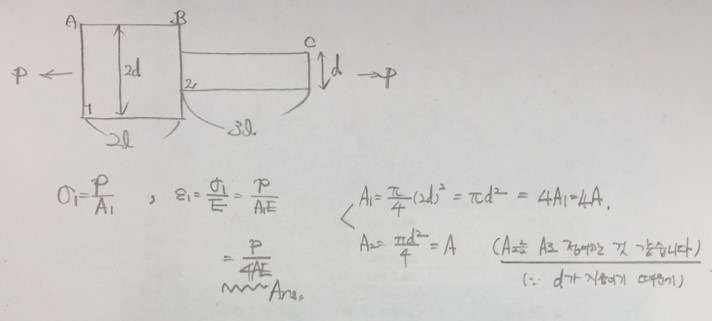 A B C
P ← 2d d → P
1 2
2l 3l
σ₁ = P/A₁ , ε₁ = σ₁/E = P/A₁E
= P/4AE
Ans.
A₁ = π/4 (2d)² = πd² = 4A₁ = 4A,
A₂ = πd²/4 = A (A₂를 A로 정의하는 것 같습니다)
(∵ d가 지름이기 때문에)